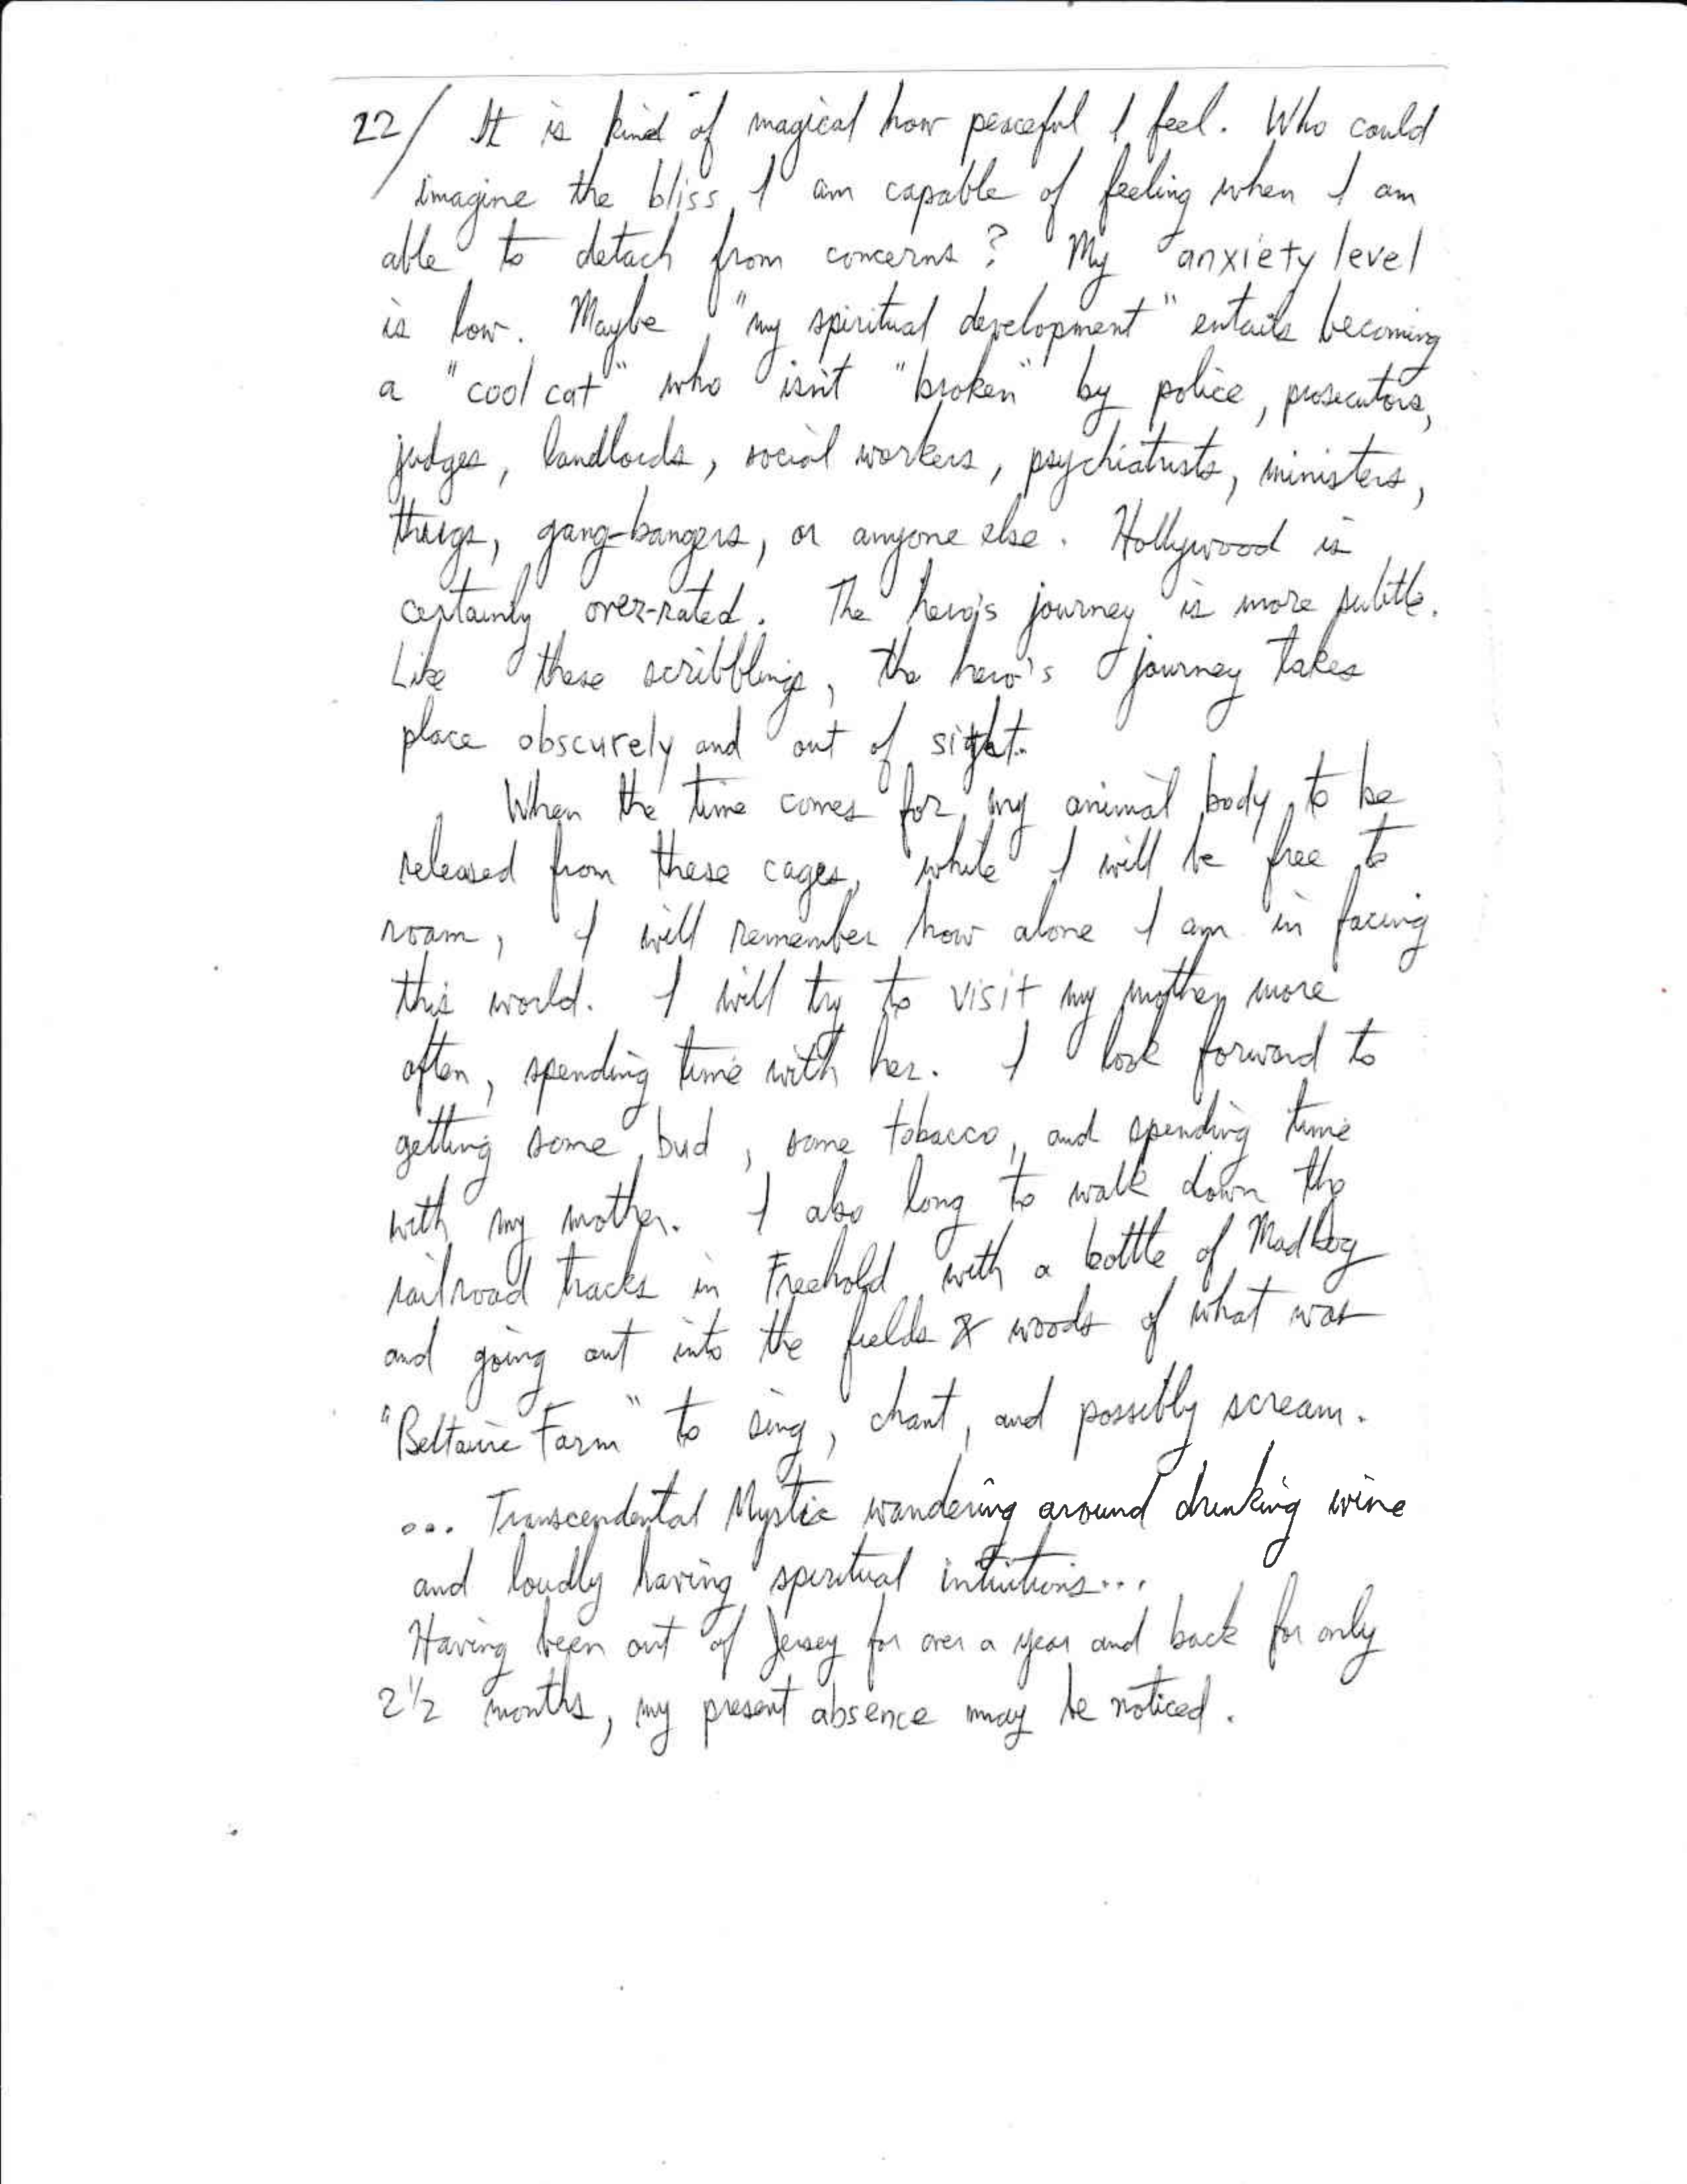 22/ It is kind of magical how peaceful I feel. Who could
imagine the bliss I am capable of feeling when I am
able to detach from concerns? My anxiety level
is low. Maybe "my spiritual development" entails becoming
a "cool cat" who isn't "broken" by police, prosecutors,
judges, landlords, social workers, psychiatrists, ministers,
thugs, gang-bangers, or anyone else. Hollywood is
certainly over-rated. The hero's journey is more subtle.
Like these scribblings, the hero's journey takes
place obscurely and out of sight.
When the time comes for my animal body to be
released from these cages, while I will be free to
roam, I will remember how alone I am in facing
this world. I will try to visit my mother more
often, spending time with her. I look forward to
getting some bud, some tobacco, and spending time
with my mother. I also long to walk down the
railroad tracks in Freehold with a bottle of MadDog
and going out into the fields & woods of what was
"Beltaine Farm" to sing, chant, and possibly scream.
... Transcendental Mystic wandering around drinking wine
and loudly having spiritual intuitions...
Having been out of Jersey for over a year and back for only
2 1/2 months, my present absence may be noticed.